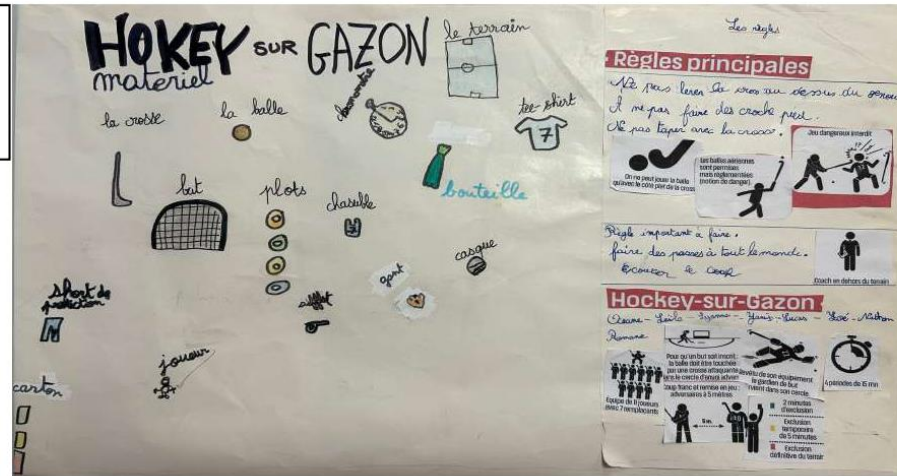 HOKEY SUR GAZON
materiel
le terrain
la crosse
la balle
chronomètre
tee-shirt
7
but
plots
chasuble
bouteille
casque
gant
sifflet
short de protection
joueur
carton
Les règles
Règles principales
Ne pas lever la cross au dessus du genou
A ne pas faire des croche pied.
Ne pas taper avec la cross.
On ne peut jouer la balle
qu'avec le côté plat de la crosse
Les balles aériennes
sont permises
mais réglementées
(notion de danger).
Jeu dangereux interdit
Règle important à faire.
faire des passes à tout le monde.
écouter le
Coach en dehors du terrain
Hockey-sur-Gazon
Romane
Equipe de 11 joueurs
avec 7 remplaçants
Pour qu'un but soit inscrit,
la balle doit être touchée
par une crosse attaquante
dans le cercle d'envoi adverse
Revêtu de son équipement
le gardien de but
intervient dans son cercle
4 périodes de 15 mn
Coup franc et remise en jeu :
adversaires à 5 mètres
5 m.
2 minutes
d'exclusion
Exclusion
temporaire
de 5 minutes
Exclusion
définitive du terrain